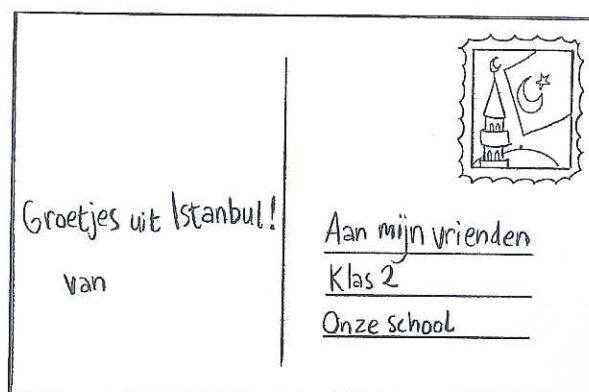 Groetjes uit Istanbul!
van
Aan mijn vrienden
Klas 2
Onze school